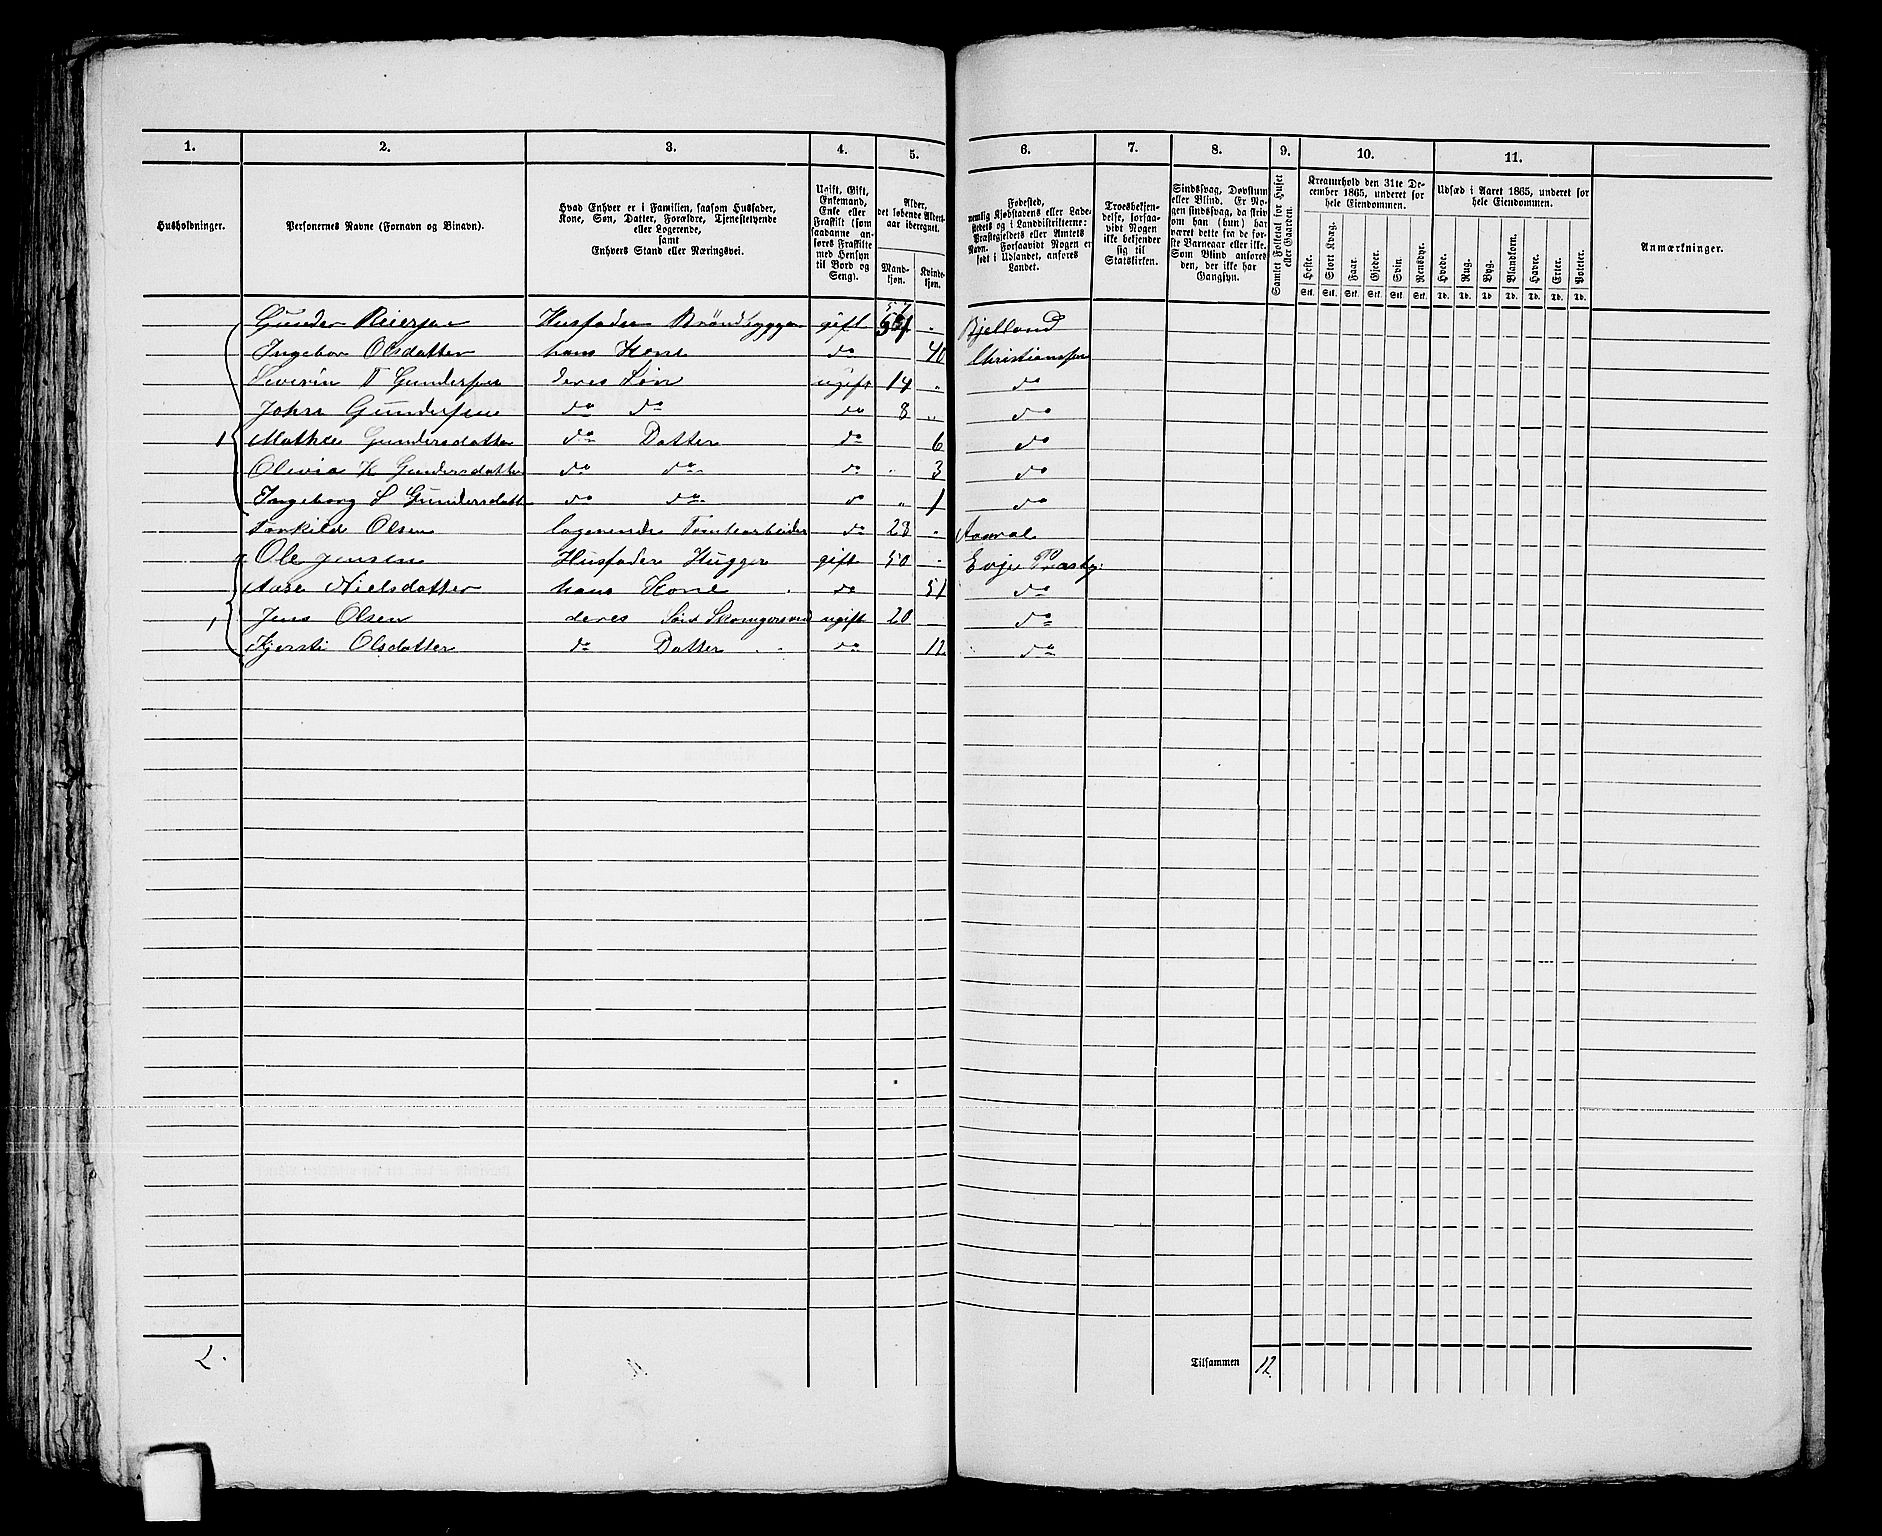 1. 2. 3. 4. 5. 6. 7. 8. 9. 10. 11.
Husholdninger.
Personernes Navne (Fornavn og Binavn).
Hvad Enhver er i Familien, saasom Husfader, Kone, Søn, Datter, Forældre, Tjenestetyende eller Logerende, samt Enhvers Stand eller Næringsvei.
Ugift, Gift, Enkemand, Enke eller Fraskilt (som saadanne anføres Fraskilte med Hensyn til Bord og Seng).
Alder, det løbende Aldersaar iberegnet.
Mandkjøn. Kvindekjøn.
Fødested, nemlig Kjøbstadens eller Ladestedets og i Landdistrikterne: Præstegjeldets eller Amtets Navn. Forsaavidt Nogen er født i Udlandet, anføres Landet.
Troesbekjendelse, forsaavidt Nogen ikke bekjender sig til Statskirken.
Sindssvag, Døvstum eller Blind. Er Nogen sindssvag, da skriv om han (hun) har været dette fra de første Barneaar eller ikke. Som Blind anføres den, der ikke har Gangsyn.
Samlet Folketal for Huset eller Gaarden.
Kreaturhold den 31te December 1865, underet for hele Eiendommen.
Heste. Stort Kvæg. Faar. Gjeder. Svin. Rensdyr.
Stk. Stk. Stk. Stk. Stk. Stk.
Udsæd i Aaret 1865, underet for hele Eiendommen.
Hvede. Rug. Byg. Blandkorn. Havre. Erter. Poteter.
Td. Td. Td. Td. Td. Td. Td.
Anmærkninger.
Gunder Reiersen Husfader Brøndbygger gift 57 " Bjelland
Ingebor Olsdatter hans Kone do 40 Christianssa
Severin T Gundersen deres Søn ugift 14 " do
Johan Gundersen do do do 8 " do
1 Mathea Gundersdatter do Datter do 6 do
Olevia K Gundersdatter do do do " 3 do
Ingeborg S Gundersdatt do do do " 1 do
Torkild Olsen logerende Tomtearbeider do 28 " Aaseral
Ole Jensen Husfader Hugger gift 50 " Evje Præstg:
Aase Nielsdatter hans Kone do 51 do
1 Jens Olsen deres Søn Skomgersvend ugift 20 do
Kjersti Olsdatter do Datter do 12 do
2. Tilsammen 12.